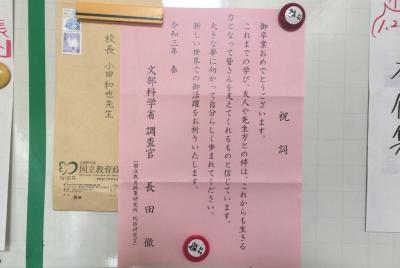 祝詞
御卒業おめでとうございます。
これまでの学び、友人や先生方との絆は、これからも生きる
力となって皆さんを支えてくれるものと信じています。
大きな夢に向かって自分らしく歩まれてください。
新しい世界での御活躍をお祈りいたします。
令和三年 春
文部科学省 調査官 長田 徹
校長 小田 和也先生
国立教育政
長田